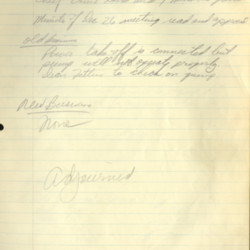 minutes of Dec 26 meeting read and approved
Old Business
Power take off is connected but
pump will not operate properly
to check on pump
New Business
None
Adjourned